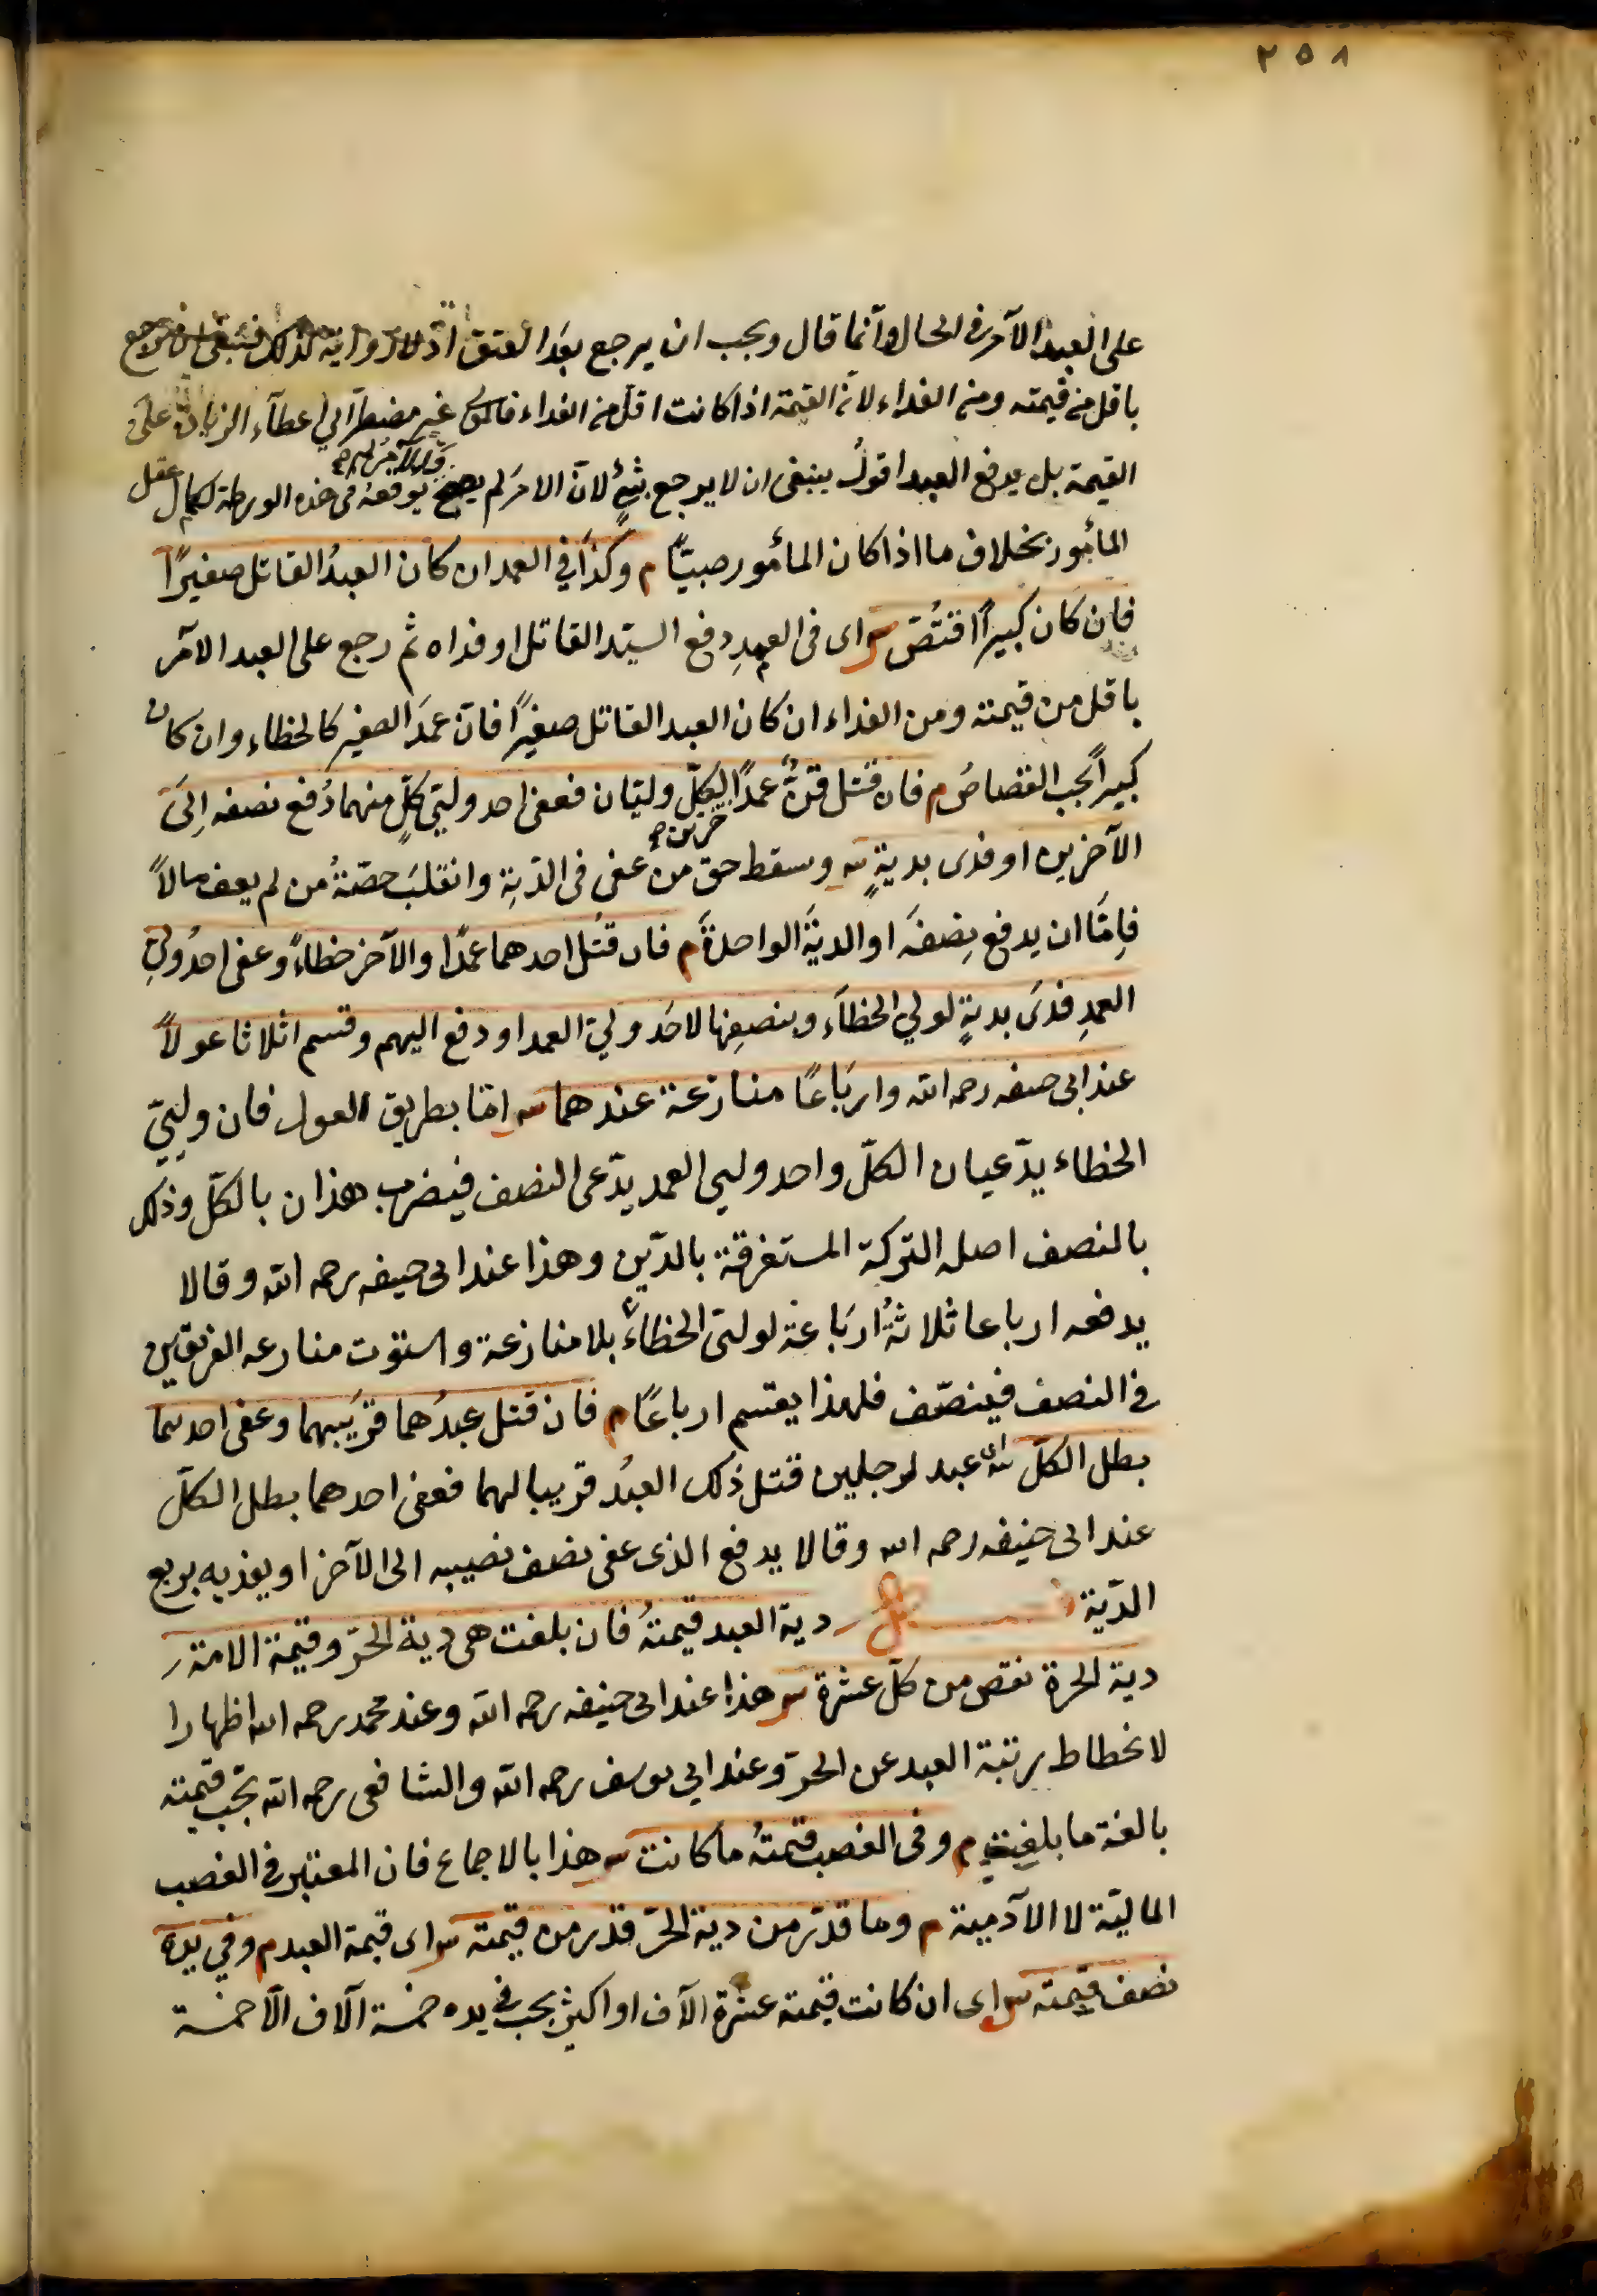 ٢٥٨
على العبد الآمر فى الحال وآنما قال ويجب ان يرجع بعَد العتق اذ لا رواية لذلك فينبغى ان يرجع
باقل من قيمته ومن الفداء لانّ القيمة اذا كانت اقل من الفداء فالمولى غير مضطرّ الى اعطآء الزيادة على
القيمة بل يدفع العبد اقولُ ينبغى ان لا يرجع بشئٍ لانّ الامرَ لم يصحّ والآمرُ لم يوقعهُ فى هذه الورطة لكمال عقل
المأمور بخلاف ما اذا كان المأمور صبيّا م وكذا في العمد ان كان العبدُ القاتل صغيرًا
فان كان كبيراً اقتُصّ س اى فى العمدِ دفع السيّد القاتل او فداه ثم رجع على العبد الآمر
باقل من قيمته ومن الفداء ان كان العبد القاتل صغيرًا فانّ عمدَ الصغير كالخطاء وان كان
كبيراً يجب القصاصُ م فان قتل قنٌّ عمدًا حرين لكلّ وليّان فعفى احد وليّى كلٍّ منهما دُفع نصفه اِلىَ
الآخرين او فدى بديةٍ س وسقط حق من عفى فى الدّيِة وانقلبَ حصّةُ من لم يعف مالاً
فاِمّا ان يدفع نِصفَه او الديَةَ الواحدةَ م فان قتل احدهما عمدًا والآخر خطاءً وعفى احدُ ولِيّ
العمدِ فدىَ بديةٍ لولي الخطآءِ وبنصفِها لاحَد وليّ العمد او دفع اليهم وقسم اثلاثا عولاً
عند ابى حنيفه رحمه الله وارباعًا منازعة عندهما س امّا بطريق العول فان ولِييّ
الخطاء يدّعيان الكلّ واحد وليي العمد يدّعى النصف فيضرب هذان بالكلّ وذلك
بالنصف اصله التركة المستغرقة بالدّين وهذا عند ابى حنيفه رحمه الله وقالا
يدفعه ارباعا ثلاثةُ ارَباعة لوليّ الخطاءِ بلا منازعة واستوت منازعه الفريقين
فى النصف فينصّف فلهذا يقسم ارباعًا م فان قتل عبدُهما قرَيبهما وعفى احدهما
بطل الكلّ س اى عبد لرجلين قتل ذلك العبدُ قريبا لهما فعفى احدهما بطل الكلّ
عند ابى حنيفه رحمه الله وقالا يدفع الذى عفى نصف نصيبه الى الآخر او يفديه بربع
الدّية فصل دية العبد قيمتهُ فان بلغت هى دية الحرّ وقيمة الامة
دية الحرة نقص من كلّ عشرة س هذا عند ابى حنيفه رحمه الله وعند محمد رحمه الله اظهارا
لانحطاط رتبة العبد عن الحرّ وعند ابى يوسف رحمه الله والشافعى رحمه الله تجب قيمته
بالغة ما بلغت م وفى الغصب قيمتهُ ما كانت س هذا بالاجماع فان المعتبر فى الغصب
الماليّة لا الآدمية م وما قدّر من دية الحرّ قدّر من قيمته س اى قيمة العبد م وفي يده
نصف قيمته س اى ان كانت قيمته عشرة آلاف او اكثر يجب فى يده خمسة آلاف الّا خمسة